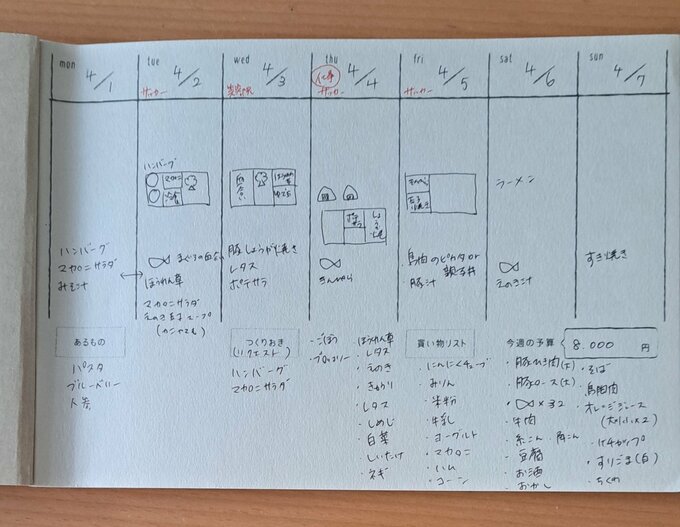 mon 4/1
tue 4/2
wed 4/3
thu 4/4
fri 4/5
sat 4/6
sun 4/7
サッカー
サッカー
サッカー
ハンバーグ
マカロニ
ラーメン
ハンバーグ
マカロニサラダ
みそ汁
ほうれん草
マカロニサラダ
豚しょうが焼き
レタス
ポテサラ
きんぴら
鳥肉のピカタor
親子丼
豚汁
えのき汁
すき焼き
あるもの
パスタ
ブルーベリー
人参
つくりおき
(リクエスト)
ハンバーグ
マカロニサラダ
・ごぼう
・ブロッコリー
ほうれん草
・レタス
・えのき
・きゅうり
・レタス
・しめじ
・白菜
・しいたけ
・ネギ
買い物リスト
・にんにくチューブ
・みりん
・米粉
・牛乳
・ヨーグルト
・マカロニ
・ハム
・コーン
今週の予算 8.000 円
・豚ひき肉(大)
・豚ロース(大)
・牛肉
・糸こん
・豆腐
・お酒
・おかし
・そば
・鳥胸肉
・オレンジジュース
・ケチャップ
・すりごま(白)
・ちくわ